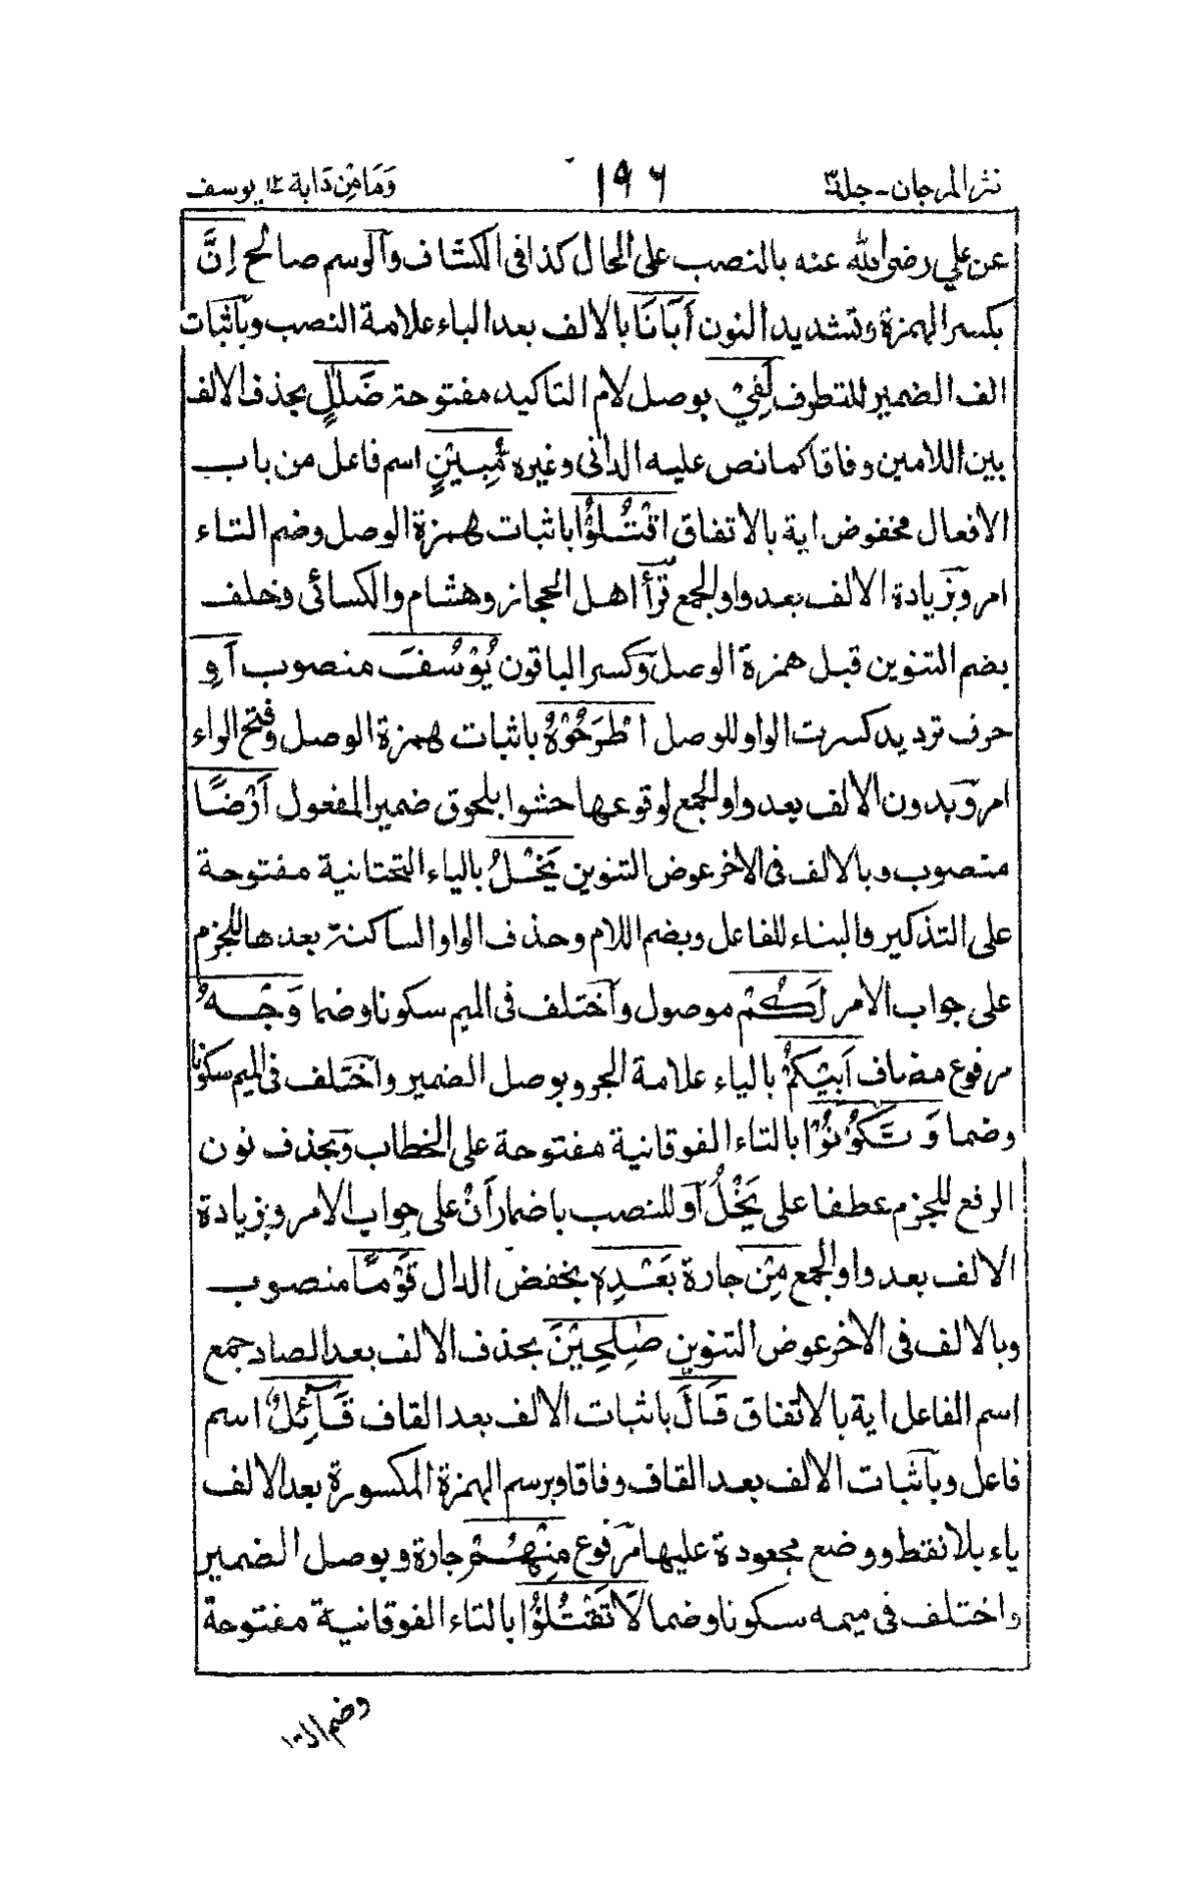 نثر المرجان - جلد ٣ ١٩٦ وَمَا مِنْ دَابة ١٢ يوسف
عن علي رضي الله عنه بالنصب على الحال كذا فى الكشاف والوسم صالح إِنَّ
بكسر الهمزة وتشديد النون أَبَانَا بالالف بعد الباء علامة النصب وباثبات
الف الضمير للتطرف لَفِيْ بوصل لام التاكيد مفتوحة ضَلٰلٍ بحذف الالف
بين اللامين وفاقا كما نص عليه الدانى وغيره مُّبِيْنٍ اسم فاعل من باب
الافعال مخفوض اية بالاتفاق اقْتُلُوْا باثبات همزة الوصل وضم التاء
امر وبزيادة الالف بعد واو الجمع قرأ اهل الحجاز وهشام والكسائى وخلف
بضم التنوين قبل همزة الوصل وكسر الباقون يُوْسُفَ منصوب اَوِ
حرف ترديد كسرت الواو للوصل اطْرَحُوْهُ باثبات همزة الوصل وفتح الراء
امر وبدون الالف بعد واو الجمع لوقوعها حشوا بلحوق ضمير المفعول اَرْضًا
منصوب وبالالف فى الاخر عوض التنوين يَخْلُ بالياء التحتانية مفتوحة
على التذكير والبناء للفاعل وبضم اللام وحذف الواو الساكنة بعدها للجزم
على جواب الامر لَكُمْ موصول واختلف فى الميم سكونا وضما وَجْهُ
مرفوع مضاف اَبِيْكُمْ بالياء علامة الجر وبوصل الضمير واختلف فى الميم سكونا
وضما وَ تَكُوْنُوْا بالتاء الفوقانية مفتوحة على الخطاب وبحذف نون
الرفع للجزم عطفا على يَخْلُ او للنصب باضمار اَنْ على جواب الامر وبزيادة
الالف بعد واو الجمع مِنْ جارة بَعْدِهٖ بخفض الدال قَوْمًا منصوب
وبالالف فى الاخر عوض التنوين صٰلِحِيْنَ بحذف الالف بعد الصاد جمع
اسم الفاعل اية بالاتفاق قَالَ باثبات الالف بعد القاف قَآئِلٌ اسم
فاعل وباثبات الالف بعد القاف وفاقا وبرسم الهمزة المكسورة بعد الالف
ياء بلا نقط ووضع مجعودة عليها مرفوع مِنْهُمْ جارة وبوصل الضمير
واختلف فى ميمه سكونا وضما لَا تَقْتُلُوْا بالتاء الفوقانية مفتوحة
وضم التاء